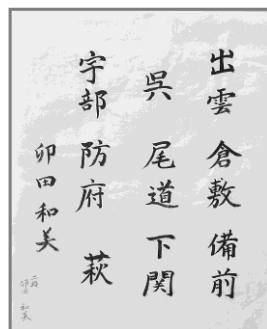 出雲 倉敷 備前
呉 尾道 下関
宇部 防府 萩
卯田和美